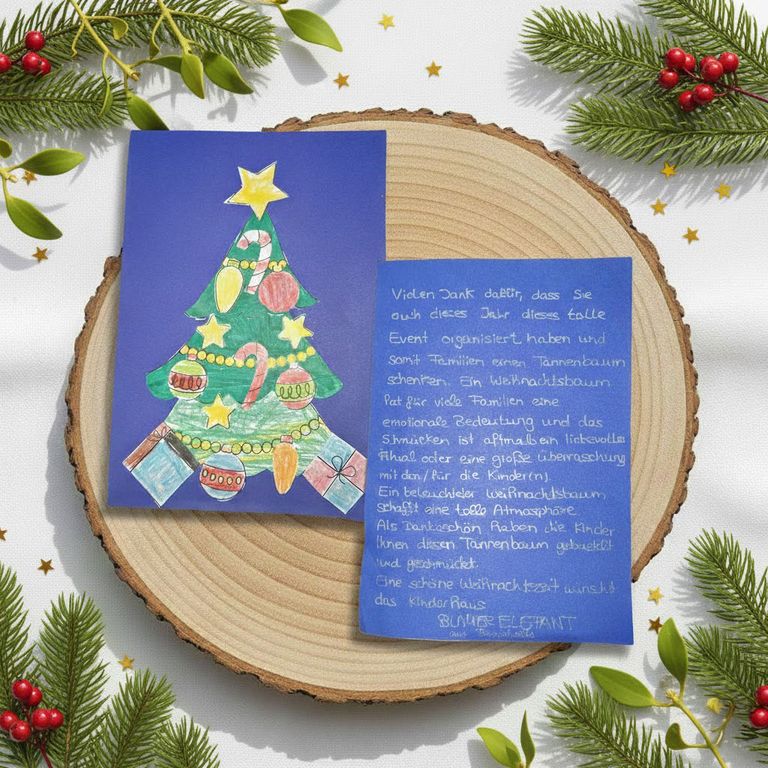 Vielen Dank dafür, dass Sie
auch dieses Jahr dieses tolle
Event organisiert haben und
somit Familien einen Tannenbaum
schenken. Ein Weihnachtsbaum
hat für viele Familien eine
emotionale Bedeutung und das
Schmücken ist oftmals ein liebevolles
Ritual oder eine große Überraschung
mit den/für die Kinder(n).
Ein beleuchteter Weihnachtsbaum
schafft eine tolle Atmosphäre.
Als Dankeschön haben die Kinder
Ihnen diesen Tannenbaum gebastelt
und geschmückt.
Eine schöne Weihnachtszeit wünscht
das Kinderhaus
BLAUER ELEFANT
aus